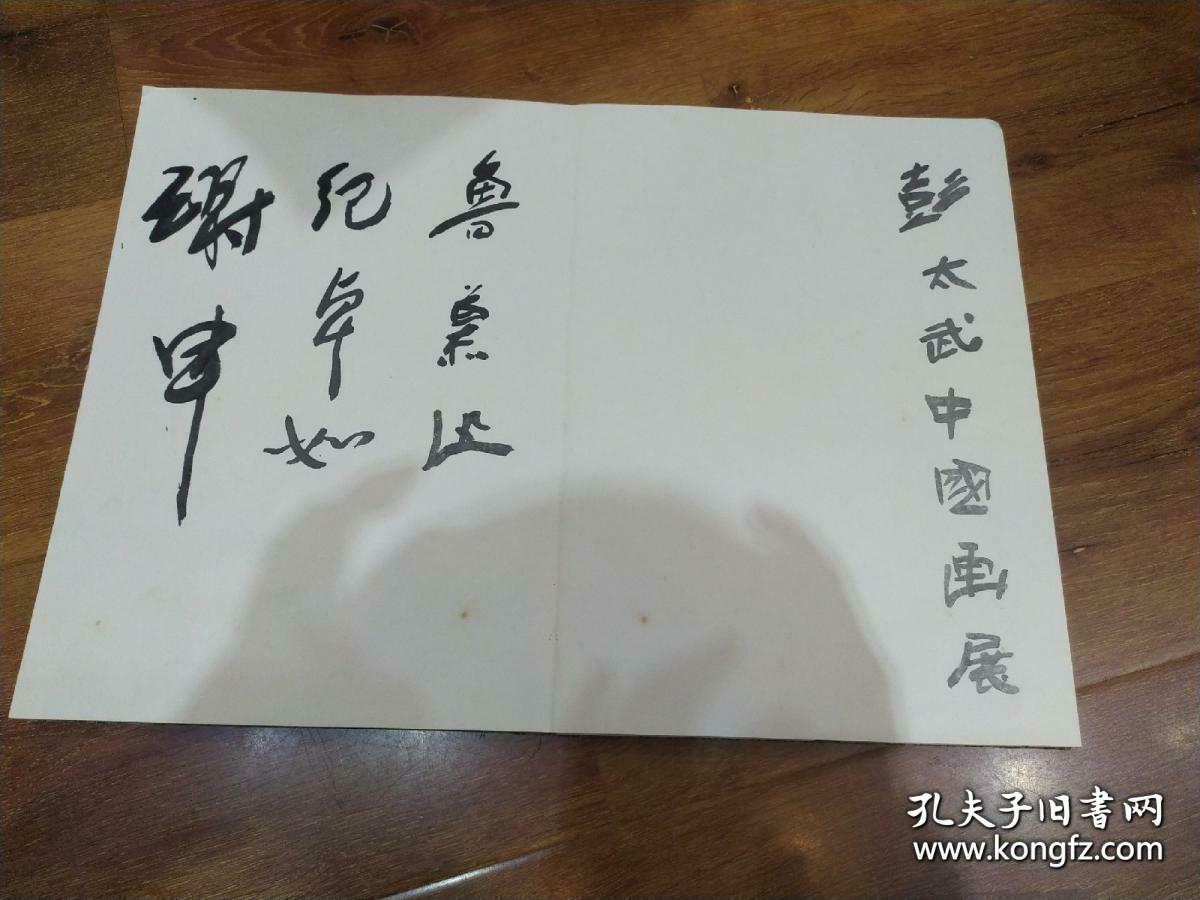 彭太武中國画展
魯慕迅
纪卓如
谢申
孔夫子旧书网
www.kongfz.com